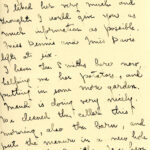 I liked her very much and
thought I would give you as
much information as possible.
Miss Dennis and Miss Davis
left at six.
I have the Smiths here now,
helping me hoe potatoes, and
putting in some more garden.
Meade is doing very nicely.
He cleaned the cellars this
morning, also the barn and
put the manure in a new hole